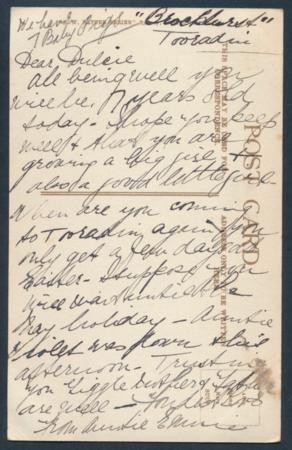 We have "Brockhurst"
7 Baby Pigs Tooradin
Dear Dulcie
all being well you
will be 7 years old
today - I hope you keep
well & that you are
growing a big girl &
also a good little girl -
When are you coming
to Tooradin again you
only get a few days for
Easter - I suppose you
will
May holiday - Auntie
Violet was down this
afternoon - Trusting
you
are well - Fondest love
from Auntie
POST CARD
THIS SPACE MAY BE USED FOR
CORRESPONDENCE
ADDRESS ONLY TO BE WRITTEN
HERE